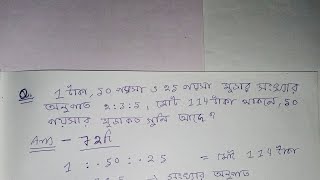 Q. 1 টাকা, 50 পয়সা ও 25 পয়সা মুদ্রার সংখ্যার
অনুপাত 2:3:5, মোট 114 টাকা থাকলে, 50
পয়সার মুদ্রা কত গুলি আছে?
Ans - 72টি
1 : .50 : .25 = মোট 114 টাকা
: 5 → সংখ্যার অনুপাত